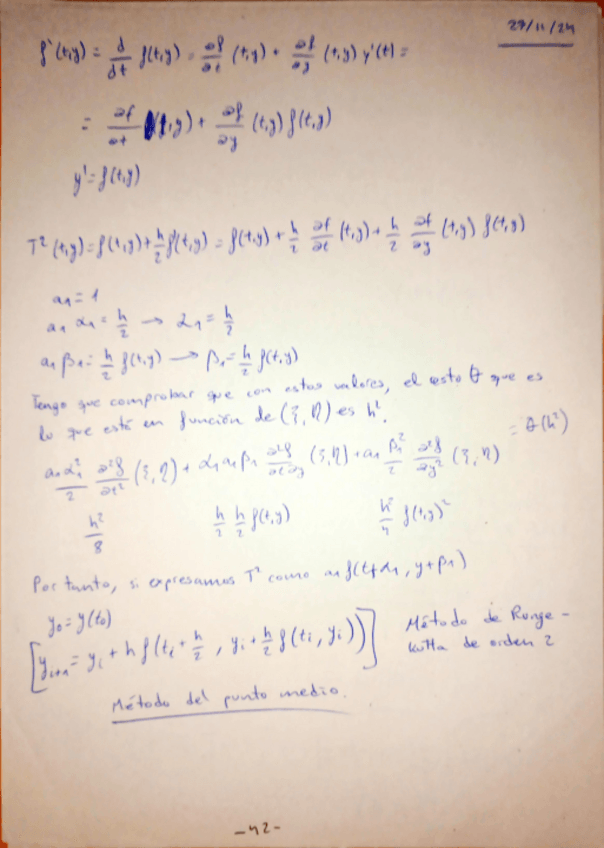 27/11/24
f'(t,y) = d/dt f(t,y) = ∂f/∂t (t,y) + ∂f/∂y (t,y) y'(t) =
= ∂f/∂t (t,y) + ∂f/∂y (t,y) f(t,y)
y' = f(t,y)
T² (t,y) = f(t,y) + h/2 f'(t,y) = f(t,y) + h/2 ∂f/∂t (t,y) + h/2 ∂f/∂y (t,y) f(t,y)
a₁ = 1
a₁ α₁ = h/2 → α₁ = h/2
a₁ β₁ = h/2 f(t,y) → β₁ = h/2 f(t,y)
Tengo que comprobar que con estos valores, el resto θ que es
lo que está en función de (ξ, η) es h².
a₁α₁²/2 ∂²f/∂t² (ξ, η) + α₁ a₁ β₁ ∂²f/∂t∂y (ξ, η) + a₁ β₁²/2 ∂²f/∂y² (ξ, η) = θ(h²)
h²/8 h/2 h/2 f(t,y) h²/4 f(t,y)²
Por tanto, si expresamos T² como a₁ f(t+α₁, y+β₁)
y₀ = y(t₀)
[yᵢ₊₁ = yᵢ + h f(tᵢ + h/2 , yᵢ + h/2 f(tᵢ, yᵢ))] Método de Runge-
Kutta de orden 2
Método del punto medio.
-42-